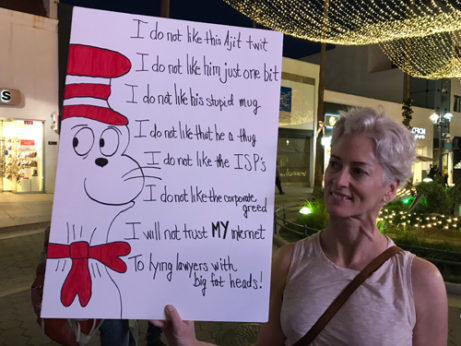 I do not like this Ajit twit
I do not like him just one bit
I do not like his stupid mug
I do not like that he a thug
I do not like the ISP's
I do not like the corporate
greed
I will not trust MY internet
To lying lawyers with
big fat heads!